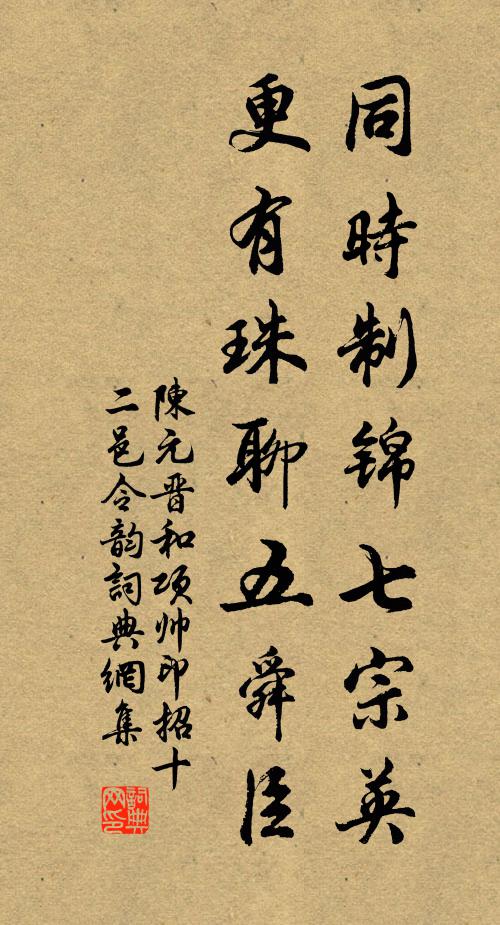 同時制锦七宗英
更有珠聊五舜臣
陳元晋和项帅印招十
二邑令韵詞典網集
詞典網印